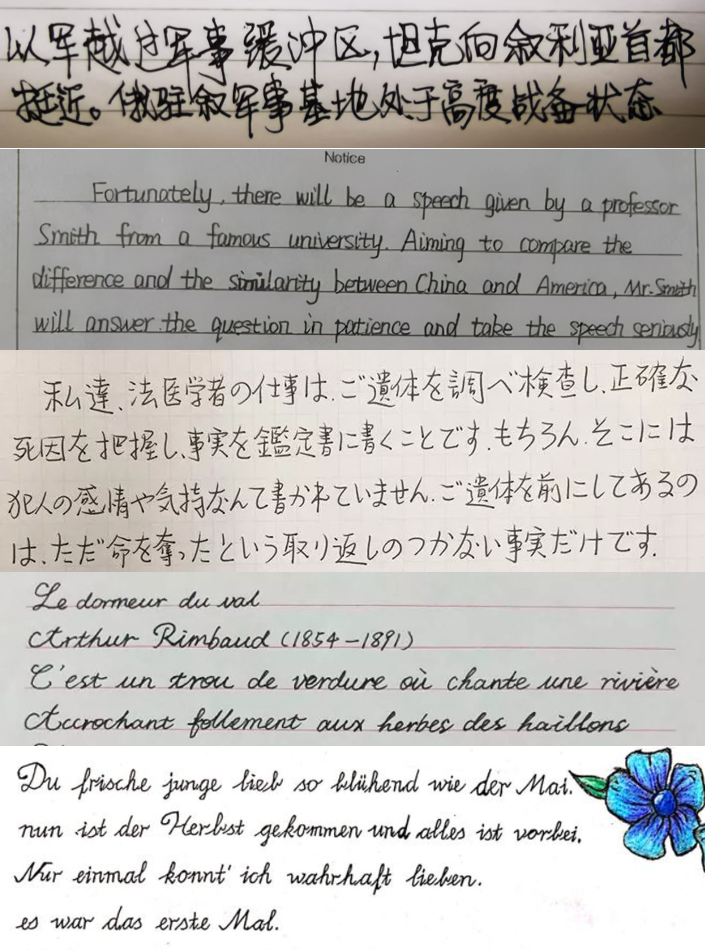 以军越过军事缓冲区,坦克向叙利亚首都
挺近。俄驻叙军事基地处于高度战备状态
Notice
Fortunately, there will be a speech given by a professor
Smith from a famous university. Aiming to compare the
difference and the similarity between China and America, Mr. Smith
will answer the question in patience and take the speech seriously
私達、法医学者の仕事は、ご遺体を調べ検査し、正確な
死因を把握し、事実を鑑定書に書くことです。もちろん、そこには
犯人の感情や気持なんて書かれていません。ご遺体を前にしてあるの
は、ただ命を奪ったという取り返しのつかない事実だけです。
Le dormeur du val
Arthur Rimbaud (1854-1891)
C'est un trou de verdure où chante une rivière
Accrochant follement aux herbes des haillons
Du frische junge lieb so blühend wie der Mai.
nun ist der Herbst gekommen und alles ist vorbei.
Nur einmal konnt' ich wahrhaft lieben.
es war das erste Mal.